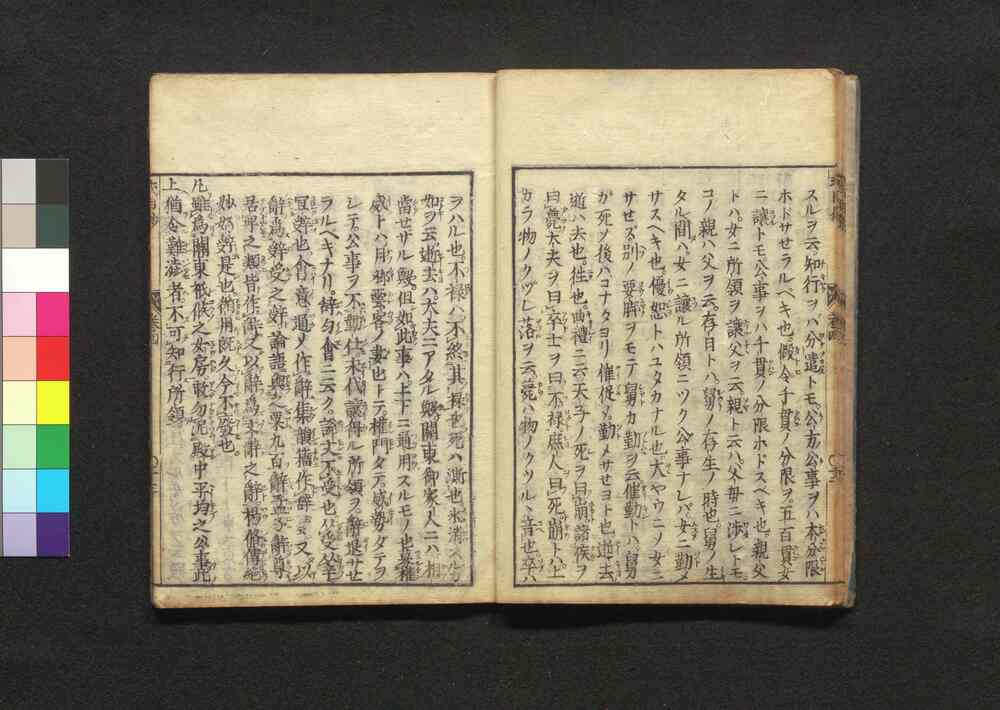 スルヲ云知行ヲハ分遣トモ公方公事ヲハ本分限
ホドサセラルベキ也假令千貫ノ分限ヲ五百貫女
ニ讓トモ公事ヲハ千貫ノ分限ホドスベキ也親父
トハ女ニ所領ヲ讓父ヲ云親ト云ハ父毋ニ渉レトモ
コノ親ハ父ヲ云存日トハ舅ノ存生ノ時也舅ノ生
タル間ハ女ニ讓ル所領ニツク公事ナレバ女ニ勤メ
サスヘキ也優恕トハユタカナル也大ヤウニノ女ニ
サセス別ノ要脚ヲモテ舅カ勤ヲ云催勤トハ舅
カ死ノ後ハコナタヨリ催促メ勤メサセヨト也逝去
逝ハ去也徃也曲禮ニ云天子ノ死ヲ曰崩諸侯ヲ
曰薨大夫ヲ曰卒士ヲ曰不禄庶人曰死崩ト上
カラ物ノクヅレ落ヲ云薨ハ物ノクツルヽ音也卒ハ
ヲハル也不禄ハ不然其禄也死ハ澌也氷消スルカ
如ヲ云逝去ハ大夫ニアタル歟關東御家人ニハ相
當セサル歟但如此事ハ上下ニ通用スルモノ也
威トハ月卿雲客ノ妻也トテ權門タテ威勢タテヲ
シテ公事ヲ不勤仕末代讓得ル所領ヲ辭退サセ
ラルベキナリ辭勾會ニ云ク説文不受也从受辛
冝辤也會意通ノ作辭集韻籀作辝又以
辭爲辤受之辤論語與之粟九百辭孟子辭尊
居卑之類皆作辭之以辭爲文辭之辭楊脩傳絶
妙好辤是也俗用既久今不廢也
凡雖爲關東祇候之女房敢勿泥殿中平均之公事此
上猶令難澁者不可知行所領